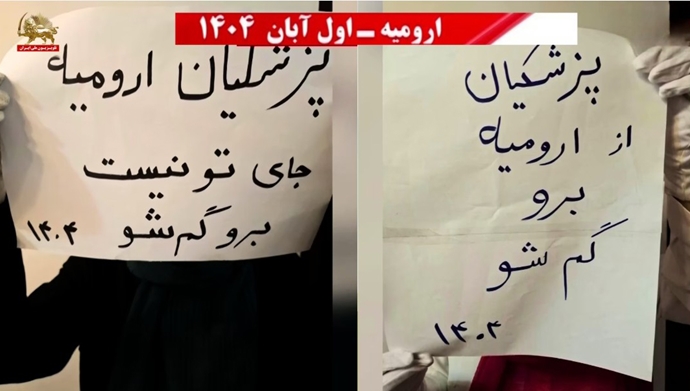 ارومیه ــ اول آبان ۱۴۰۴
پزشکیان ارومیه
جای تو نیست
برو گم شو
۱۴۰۴
پزشکیان
از ارومیه
برو
گم شو
۱۴۰۴
تلویزیون ملی ایران